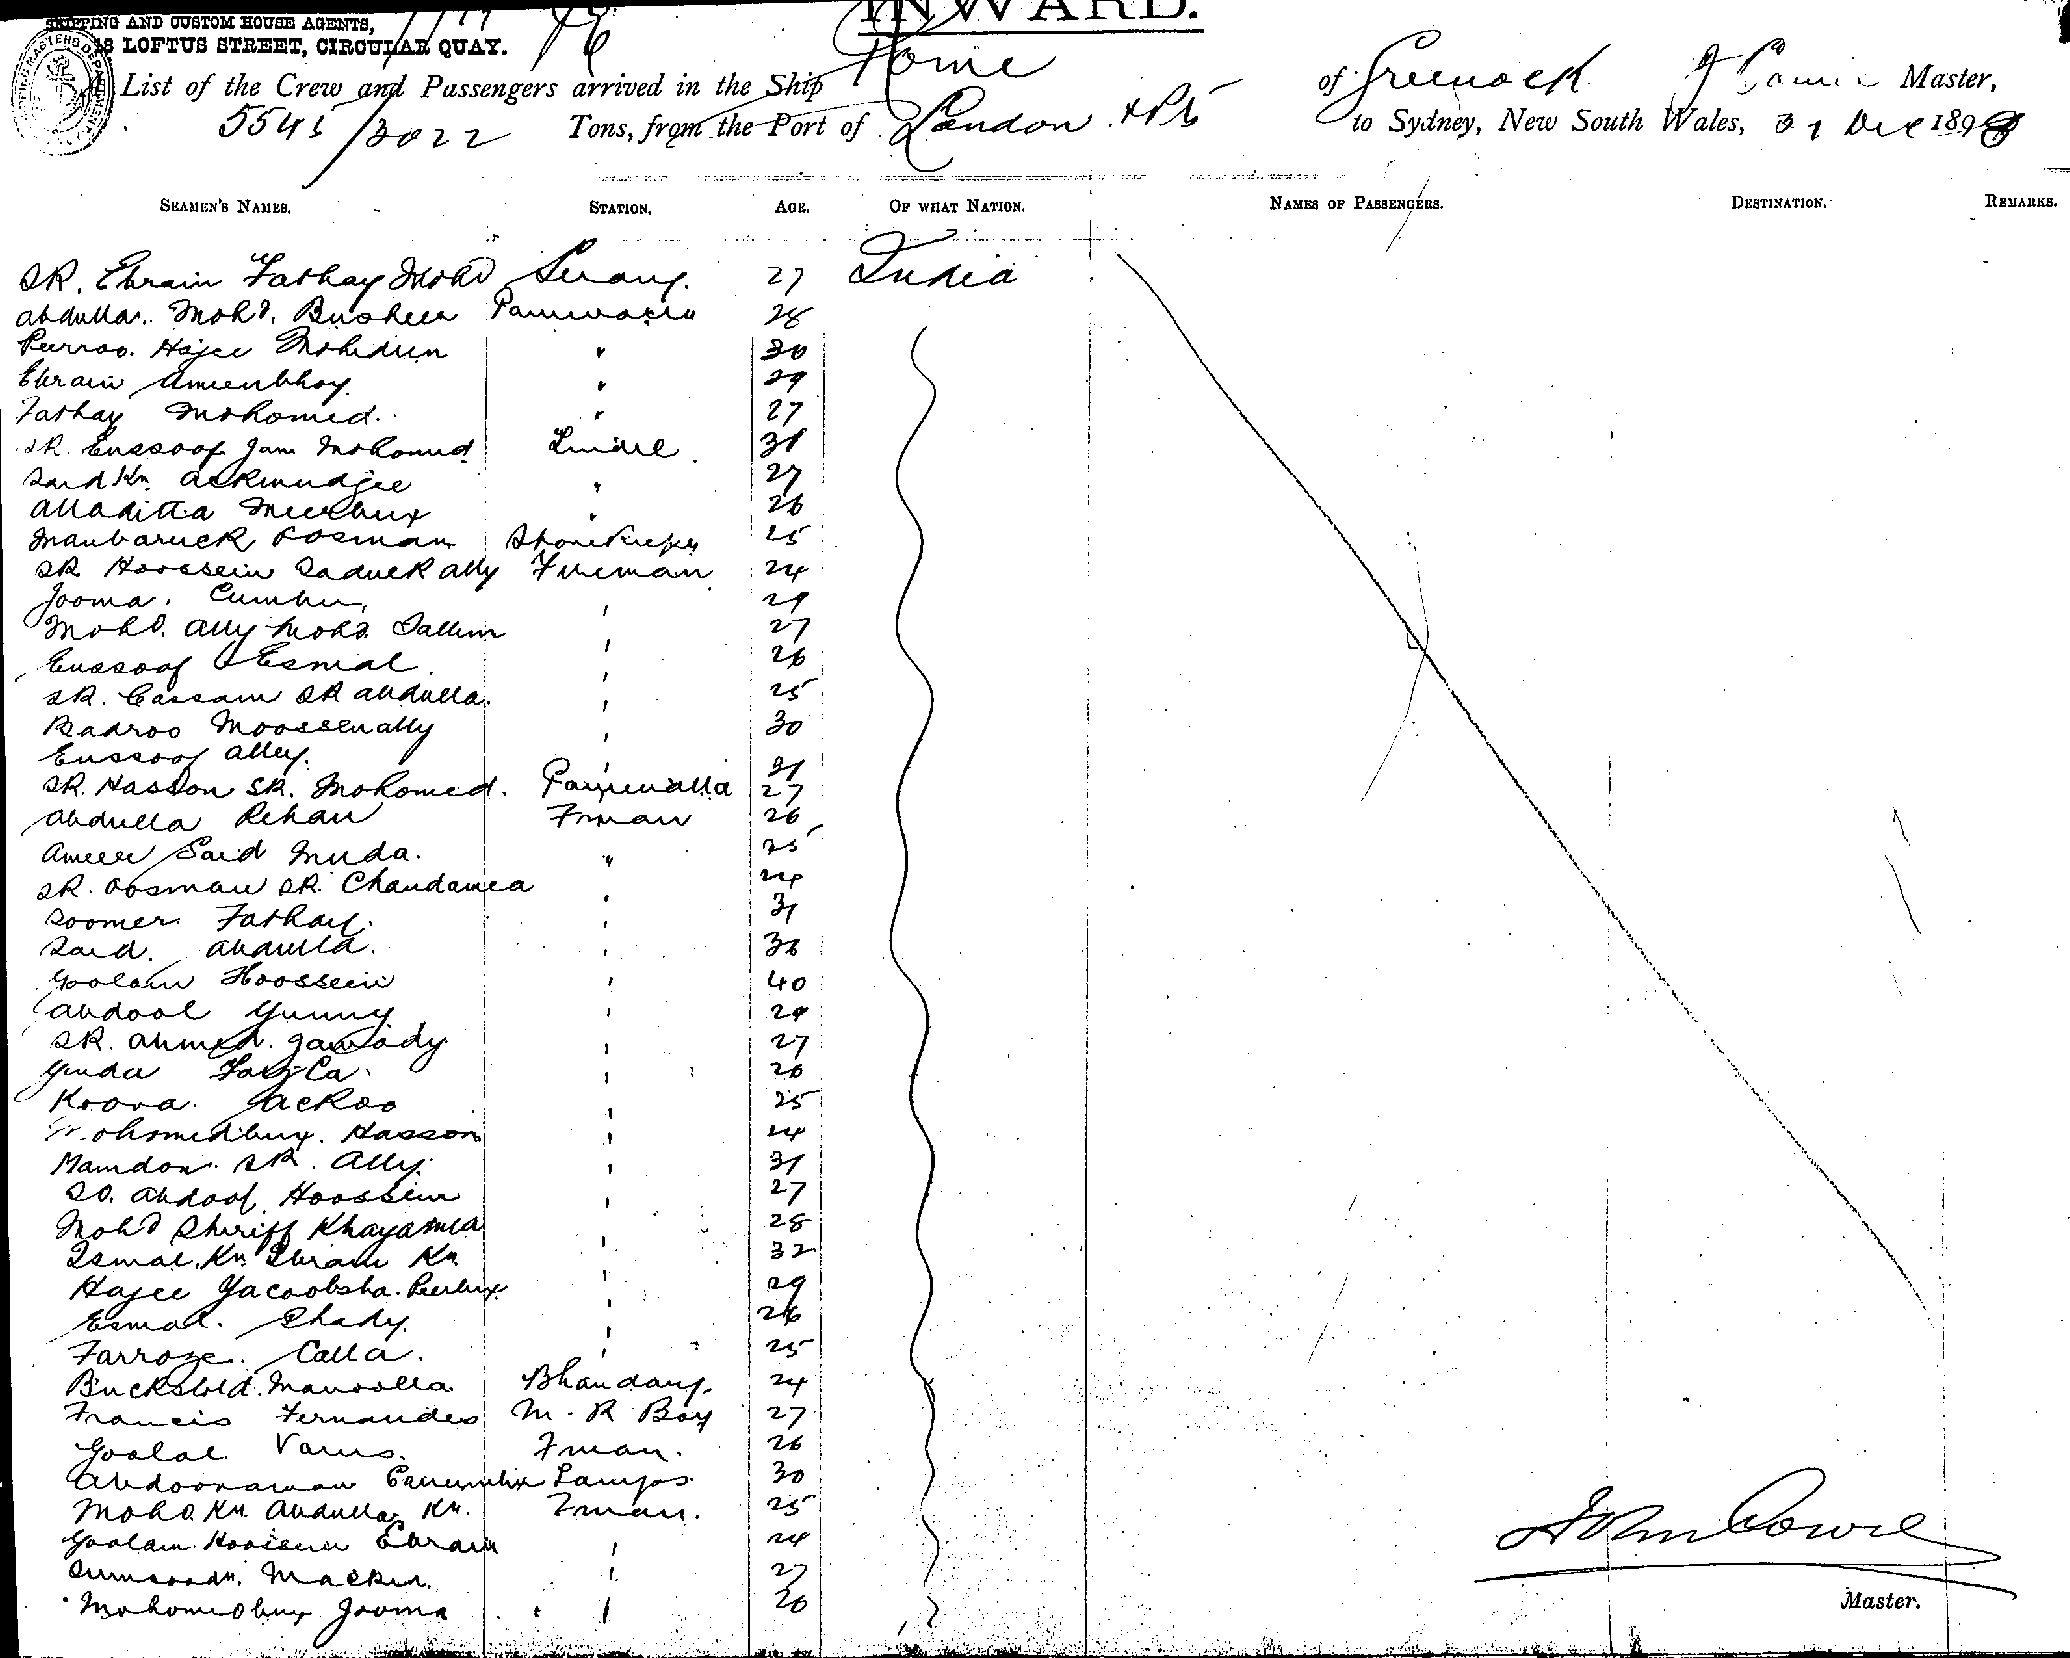 SHIPPING AND CUSTOM HOUSE AGENTS,
18 LOFTUS STREET, CIRCULAR QUAY.
INWARD.
List of the Crew and Passengers arrived in the Ship Rome of Greenock J Cowie Master,
5545/3022 Tons, from the Port of London to Sydney, New South Wales, 31 Dec 1898
SEAMEN'S NAMES. STATION. AGE. OF WHAT NATION. NAMES OF PASSENGERS. DESTINATION. REMARKS.
SK. Ebraim Fathay Mohd Serang. 27 India
Abdulla. Mohd. Busheer 28
Hajee Mohidun " 30
Ebraim Ameenbhoy " 29
Fathay Mohomed. " 27
SK. Eussoof Jam Mohomed 31
Said Kn. " 27
Alladitta " 26
Maubaruck Oosman Storekeeper 25
SK Hoossein Saduck Ally Fireman 24
Jooma. 29
Mohd. Ally Mohd. Sallim 27
Eussoof Esmal 26
SK. Cassam SK Abdulla. 25
Badroo Moossenally 30
Eussoof Alley. 31
SK. Hasson SK. Mohomed. 27
Abdulla Rehan Fman 26
Ameer Said Muda. " 25
SK. Oosman SK. Chandamea 24
Soomer Fathay. 31
Said. Abdulla.
Goolam Hoossein 40
Abdool Gunny
SK. Ahmed. 27
26
Koova. Jackoo 25
Mohomedbux. Hasson 24
Mamdoo. SK. Ally. 31
SD. Abdool Hoossein 27
Mohd Sheriff Khayamea 28
Ismal. Kn. Ebraim Kn 32
Hajee Yacoobsha. Peerbux. 29
Esmal. Shady. 26
Farroze. Calla. 25
Manoolla Bhandary. 24
Francis Fernandes M. R Boy 27
Goolal Fman. 26
Lamps 30
Mohd. Kn. Abdulla Kn. Fman. 25
Goolam Hoosein Ebraim 24
27
Mohomedbux Jooma 26
John Cowie
Master.